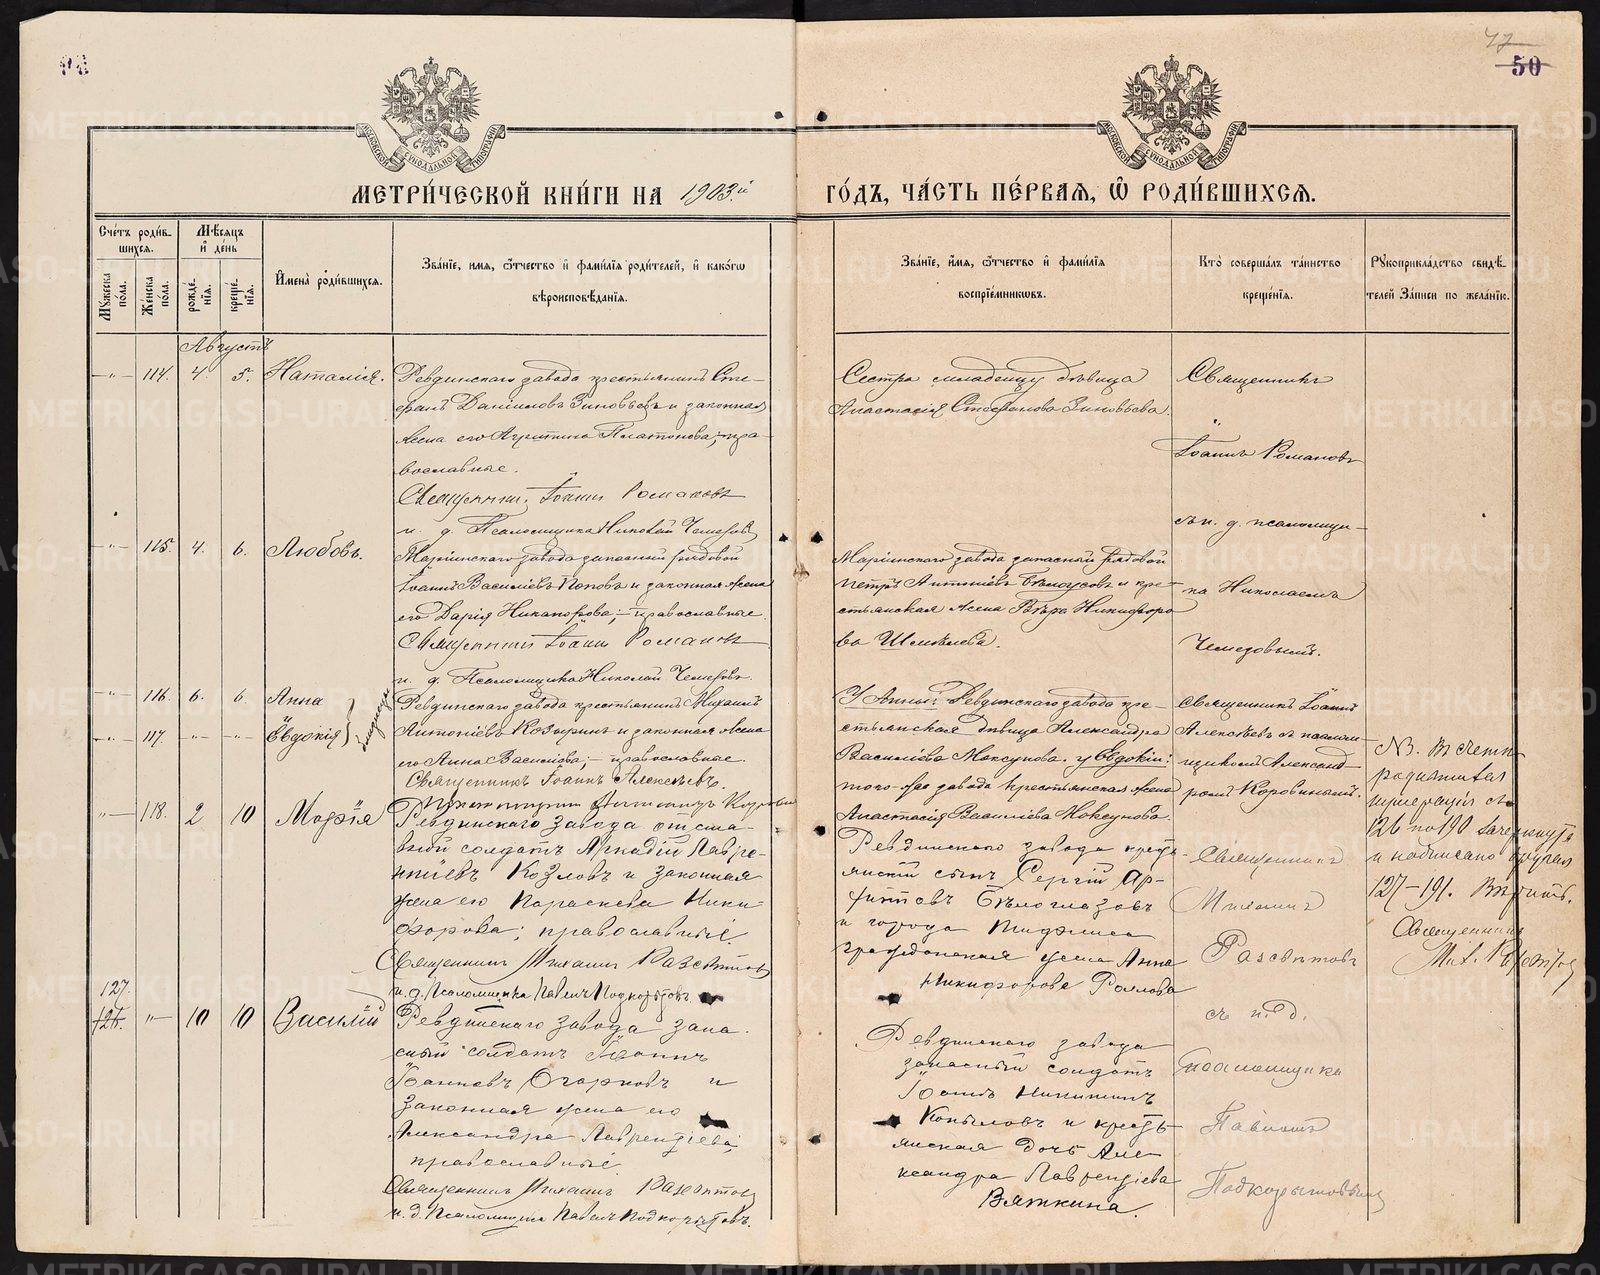 50
МЕТРИ́ЧЕСКОЙ КНИ́ГИ НА 1903.й ГО́ДЪ, ЧА́СТЬ ПЕ́РВАЯ, Ѡ РОДИ́ВШИХСЯ.
МОСКОВСКОЙ СУНОДАЛЬНОЙ ТИПОГРАФІИ
МОСКОВСКОЙ СУНОДАЛЬНОЙ ТИПОГРАФІИ
Сче́тъ роди́в-
шихся.
Мѣ́сяцъ
и҆ де́нь
Мꙋ́жеска по́ла.
Же́нска по́ла.
рожде́-
нїя.
креще́-
нїя.
И҆мена̀ роди́вшихся.
Зва́нїе, и҆мя, ѻ҆́тчество и҆ фами́лїя роди́телей, и҆ како́гѡ
вѣроисповѣ́данїя.
Зва́нїе, и҆́мя, ѻ҆́тчество и҆ фами́лїя
воспрїе́мникѡвъ.
Кто̀ соверша́лъ та́инство
креще́нїя.
Рꙋкоприкла́дство свидѣ́-
телей За́писи по жела́нїю.
Августъ
-"- 114. 4. 5. Наталія.
Ревдинскаго завода крестьянинъ Сте-
фанъ Даніиловъ Зиновьевъ и законная
жена его Агрипина Платонова; пра-
вославные.
Священникъ Іоаннъ Романовъ
и. д. Псаломщика Николай Чемезовъ
Сестра младенцу дѣвица
Анастасія Стефанова Зиновьева.
Священникъ
Іоаннъ Романовъ
съ и. д. псаломщи-
ка Николаемъ
Чемезовымъ.
-"- 115. 4. 6. Любовь.
Маріинскаго завода запасный рядовой
Іоаннъ Васильевъ Поповъ и законная жена
его Дарія Никанорова; православные.
Священникъ Іоаннъ Романовъ
и. д. Псаломщика Николай Чемезовъ.
Маріинскаго завода запасный рядовой
Петръ Бѣлоусовъ и кре-
стьянская жена Вѣра Никифоро
ва Шмелева.
-"- 116. 6. 6. Анна
-"- 117. -"- -"- Евдокія
близнецы
Ревдинскаго завода крестьянинъ Михаилъ
Антоніевъ Козыринъ и законная жена
его Анна Василіева; православные.
Священникъ Іоаннъ Алексѣевъ.
У Анны: Ревдинскаго завода кре-
стьянская дѣвица Александра
Василіева Моксунова. у Евдокіи:
того-же завода крестьянская жена
Анастасія Василіева Моксунова.
Священникъ Іоаннъ
Алексѣевъ съ псалом-
щикомъ Александ
ромъ Коровинымъ.
-"- 118. 2 10 Марія
Ревдинскаго завода отста-
вной солдатъ Аркадій Лавре-
нтіевъ Козловъ и законная
жена его Параскева Ники-
форова; православные.
Священникъ Михаилъ Разсвѣтовъ
и. д. Псаломщика Павелъ Подкорытовъ
Ревдинскаго завода кресть-
янскій сынъ Сергій
Бѣлоглазовъ
и города Тифлиса
гражданская жена Анна
Никифорова
Священникъ
Михаилъ
Разсвѣтовъ
съ и. д.
псаломщика
Павломъ
Подкорытовымъ
NB. Въ счетѣ
родившихся
нумерація съ
126 по 190 зачеркнута
и надписано другая
127-191. Вѣрить.
Священникъ
Мих. Разсвѣтов
127.
126. "- 10 10 Василій
Ревдинскаго завода запа-
сный солдатъ Іоаннъ
Іоанновъ Огарковъ и
законная жена его
Александра Лаврентіева;
православные.
Священникъ Михаилъ Разсвѣтовъ
и. д. Псаломщика Павелъ Подкорытовъ.
Ревдинскаго завода
запасный солдатъ
Іоаннъ Никитинъ
Копыловъ и кресть-
янская дочь Але-
ксандра Лаврентіева
Вяткина.
METRIKI.GASO-URAL.RU